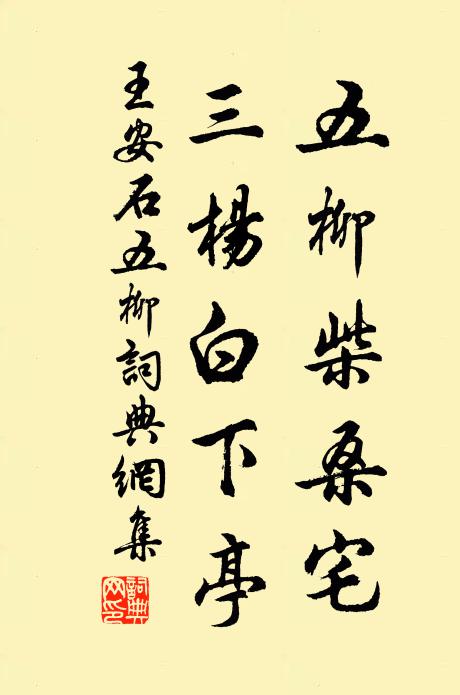 五柳柴桑宅
三楊白下亭
王安石五柳詞典網集
詞典網印